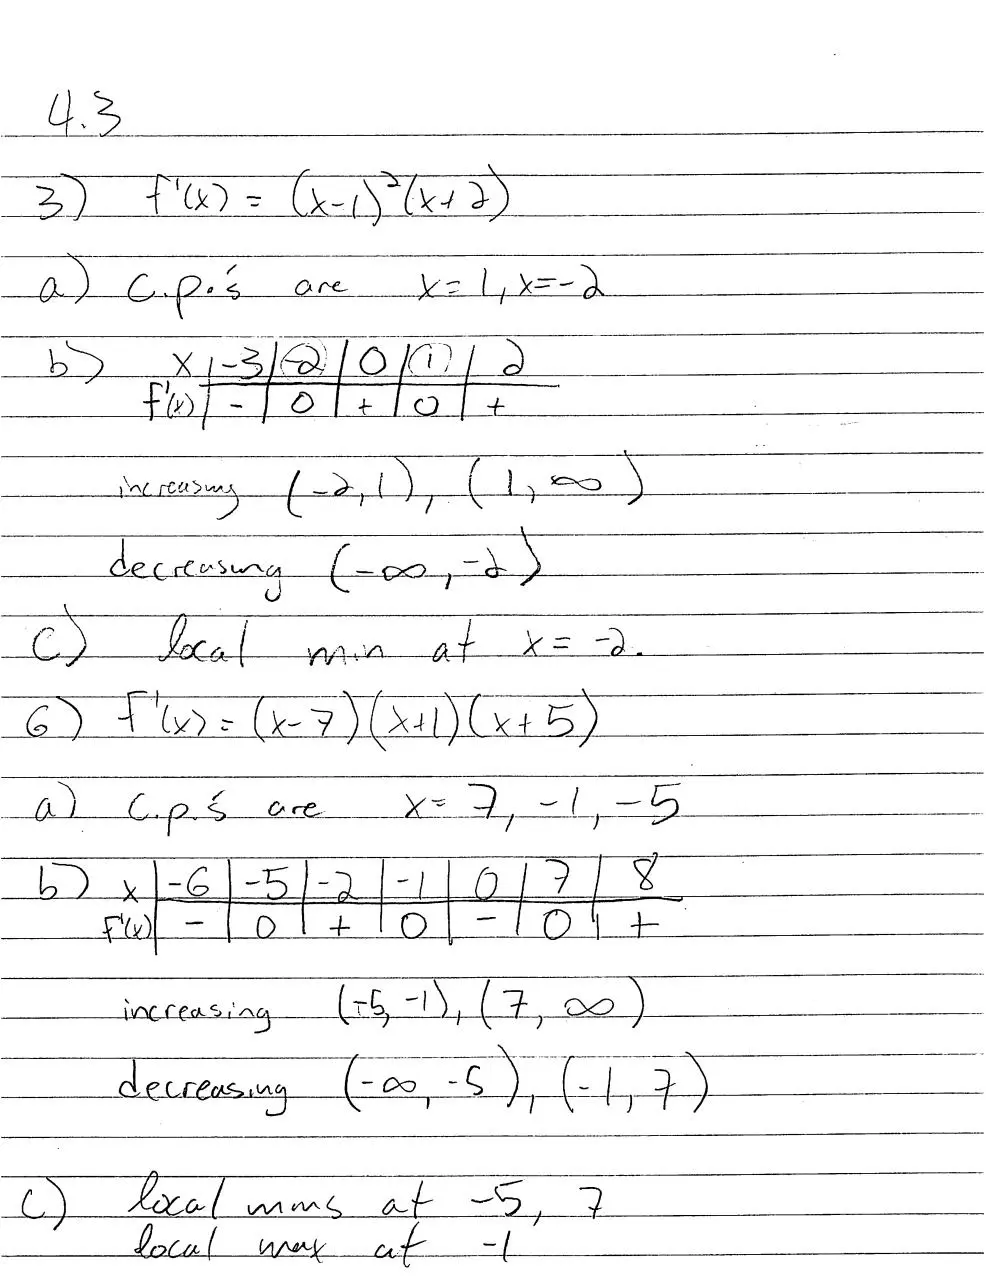 4.3
3) f'(x) = (x-1)²(x+2)
a) c.p.'s are x=1, x=-2
b) x | -3 | -2 | 0 | 1 | 2
f'(x) | - | 0 | + | 0 | +
increasing (-2,1), (1, ∞)
decreasing (-∞, -2)
c) local min at x = -2.
6) f'(x) = (x-7)(x+1)(x+5)
a) c.p.'s are x= 7, -1, -5
b) x | -6 | -5 | -2 | -1 | 0 | 7 | 8
f'(x) | - | 0 | + | 0 | - | 0 | +
increasing (-5, -1), (7, ∞)
decreasing (-∞, -5), (-1, 7)
c) local mins at -5, 7
local max at -1